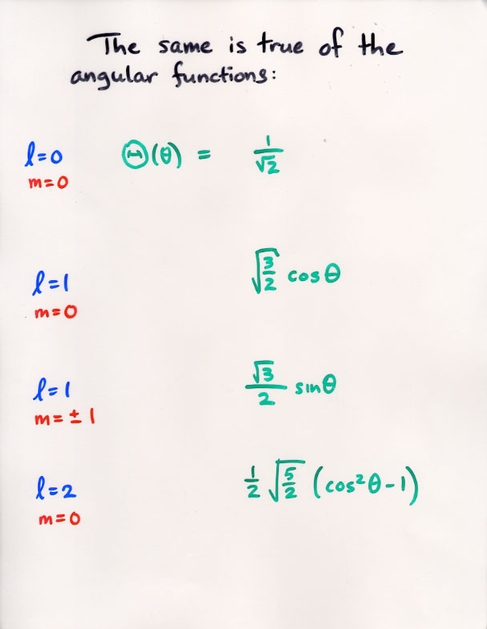 The same is true of the
angular functions:
l=0 Θ(θ) = 1/√2
m=0
l=1 √(3/2) cosθ
m=0
l=1 √3/2 sinθ
m=±1
l=2 1/2 √(5/2) (cos²θ-1)
m=0